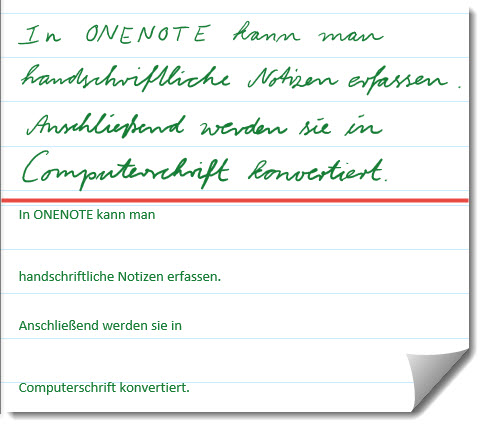 In ONENOTE kann man
handschriftliche Notizen erfassen.
Anschließend werden sie in
Computerschrift konvertiert.
In ONENOTE kann man
handschriftliche Notizen erfassen.
Anschließend werden sie in
Computerschrift konvertiert.